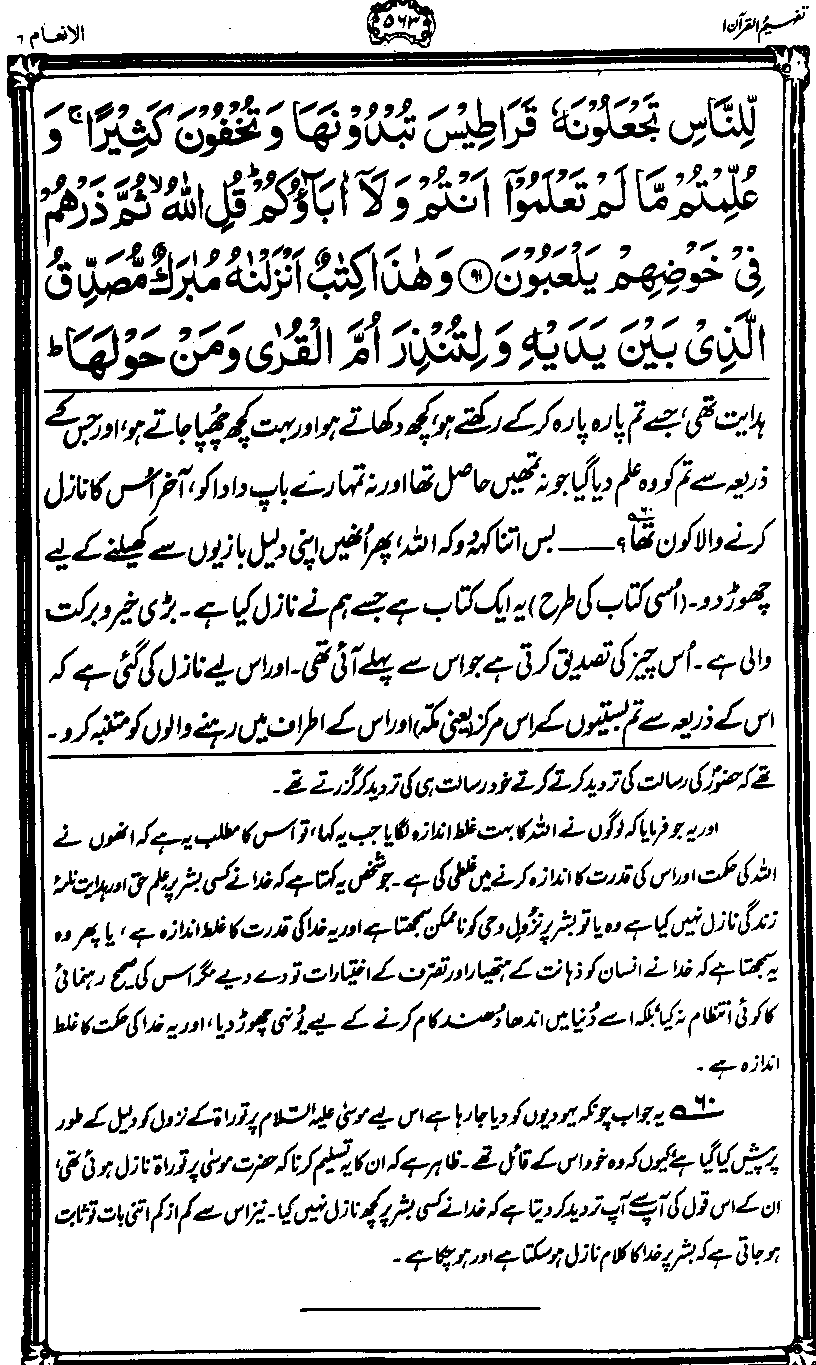 تفہیم القرآن ۱
۵۶۳
الانعام ۶
لِّلنَّاسِ تَجْعَلُوْنَهٗ قَرَاطِيْسَ تُبْدُوْنَهَا وَتُخْفُوْنَ كَثِيْرًا ۚ وَ
عُلِّمْتُمْ مَّا لَمْ تَعْلَمُوْۤا اَنْتُمْ وَلَاۤ اٰبَآؤُكُمْ ؕ قُلِ اللّٰهُ ۙ ثُمَّ ذَرْهُمْ
فِيْ خَوْضِهِمْ يَلْعَبُوْنَ ﴿۹۱﴾ وَهٰذَا كِتٰبٌ اَنْزَلْنٰهُ مُبٰرَكٌ مُّصَدِّقُ
الَّذِيْ بَيْنَ يَدَيْهِ وَلِتُنْذِرَ اُمَّ الْقُرٰى وَمَنْ حَوْلَهَا ؕ
ہدایت تھی، جسے تم پارہ پارہ کر کے رکھتے ہو، کچھ دکھاتے ہو اور بہت کچھ چھپا جاتے ہو، اور جس کے
ذریعہ سے تم کو وہ علم دیا گیا جو نہ تمھیں حاصل تھا اور نہ تمہارے باپ دادا کو، آخر اُس کا نازل
کرنے والا کون تھا۶۰؟ —— بس اتنا کہہ دو کہ اللہ، پھر اُنھیں اپنی دلیل بازیوں سے کھیلنے کے لیے
چھوڑ دو۔ (اُسی کتاب کی طرح) یہ ایک کتاب ہے جسے ہم نے نازل کیا ہے۔ بڑی خیر و برکت
والی ہے۔ اُس چیز کی تصدیق کرتی ہے جو اس سے پہلے آئی تھی۔ اور اس لیے نازل کی گئی ہے کہ
اس کے ذریعہ سے تم بستیوں کے اس مرکز (یعنی مکہ) اور اس کے اطراف میں رہنے والوں کو متنبہ کرو۔
تھے کہ حضورؐ کی رسالت کی تردید کرتے کرتے خود رسالت ہی کی تردید کر گزرتے تھے۔
اور یہ جو فرمایا کہ لوگوں نے اللہ کا بہت غلط اندازہ لگایا جب یہ کہا، تو اُس کا مطلب یہ ہے کہ انھوں نے
اللہ کی حکمت اور اس کی قدرت کا اندازہ کرنے میں غلطی کی ہے۔ جو شخص یہ کہتا ہے کہ خدا نے کسی بشر پر علم حق اور ہدایت نامۂ
زندگی نازل نہیں کیا ہے وہ یا تو بشر پر نزولِ وحی کو ناممکن سمجھتا ہے اور یہ خدا کی قدرت کا غلط اندازہ ہے، یا پھر وہ
یہ سمجھتا ہے کہ خدا نے انسان کو ذہانت کے ہتھیار اور تصرف کے اختیارات تو دے دیے مگر اس کی صحیح رہنمائی
کا کوئی انتظام نہ کیا، بلکہ اسے دُنیا میں اندھا دُھند کام کرنے کے لیے یُونہی چھوڑ دیا، اور یہ خدا کی حکمت کا غلط
اندازہ ہے۔
۶۰ یہ جواب چونکہ یہودیوں کو دیا جا رہا ہے اس لیے موسیٰ علیہ السّلام پر توراۃ کے نزول کو دلیل کے طور
پر پیش کیا گیا ہے، کیوں کہ وہ خود اس کے قائل تھے۔ ظاہر ہے کہ ان کا یہ تسلیم کرنا کہ حضرت موسیٰ پر توراۃ نازل ہوئی تھی،
ان کے اس قول کی آپ سے آپ تردید کر دیتا ہے کہ خدا نے کسی بشر پر کچھ نازل نہیں کیا۔ نیز اس سے کم از کم اتنی بات تو ثابت
ہو جاتی ہے کہ بشر پر خدا کا کلام نازل ہو سکتا ہے اور ہو چکا ہے۔